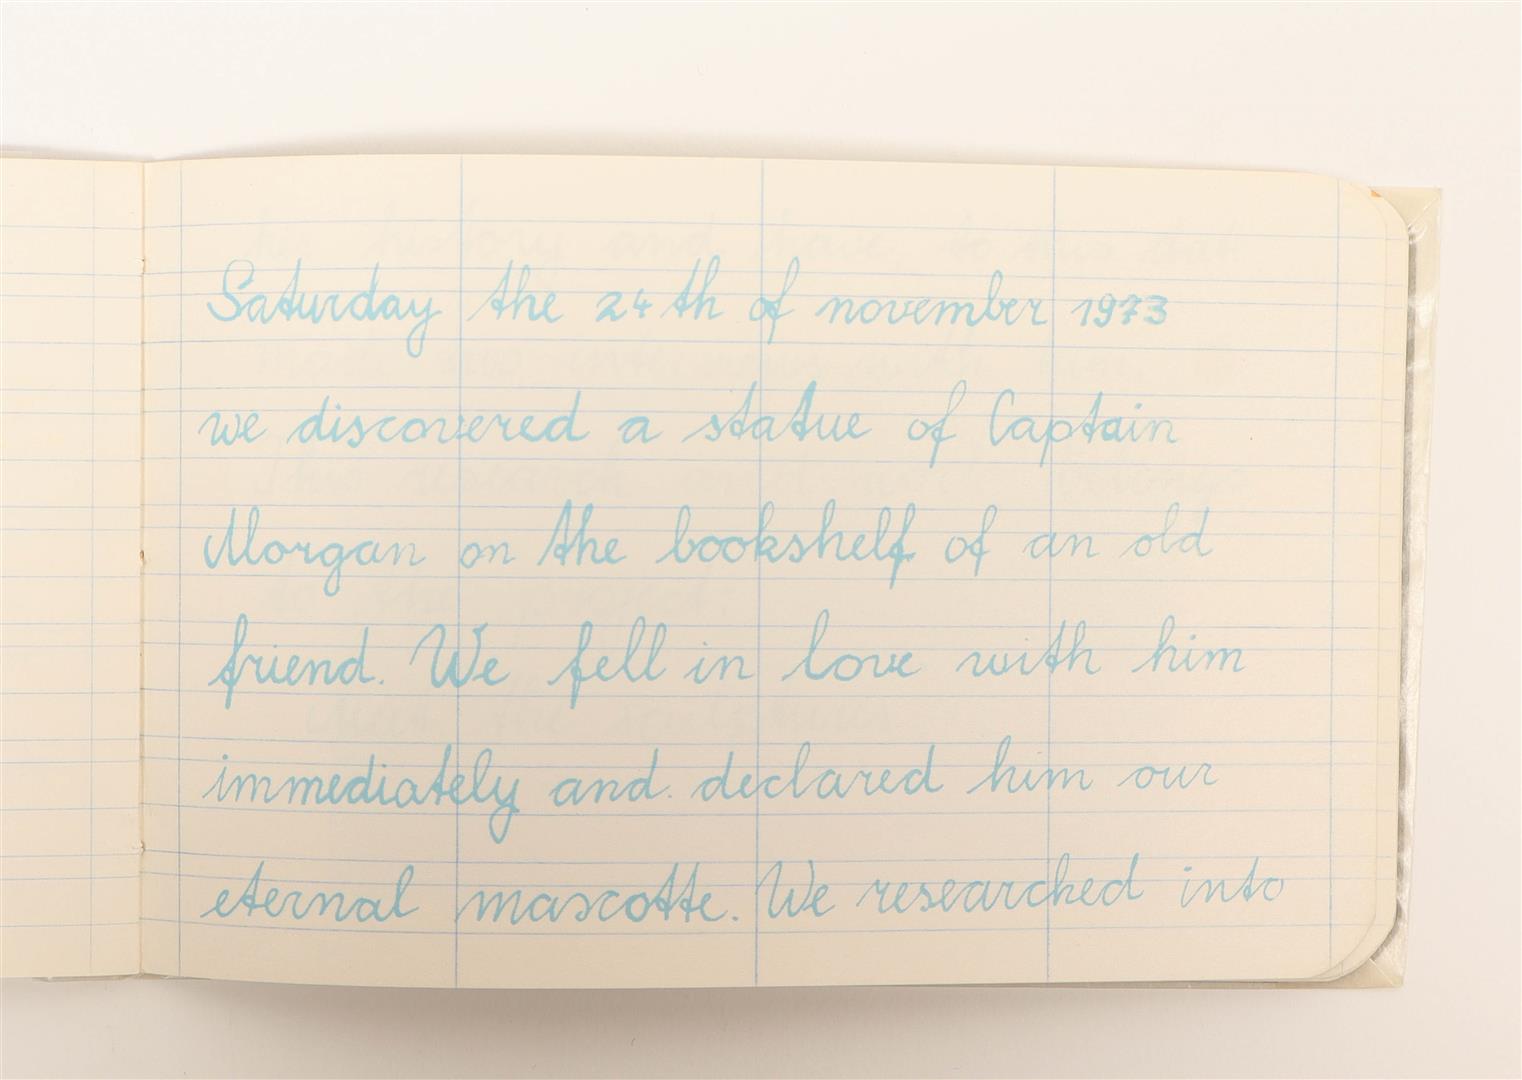 Saturday the 24th of november 1973
we discovered a statue of Captain
Morgan on the bookshelf of an old
friend. We fell in love with him
immediately and declared him our
eternal mascotte. We researched into